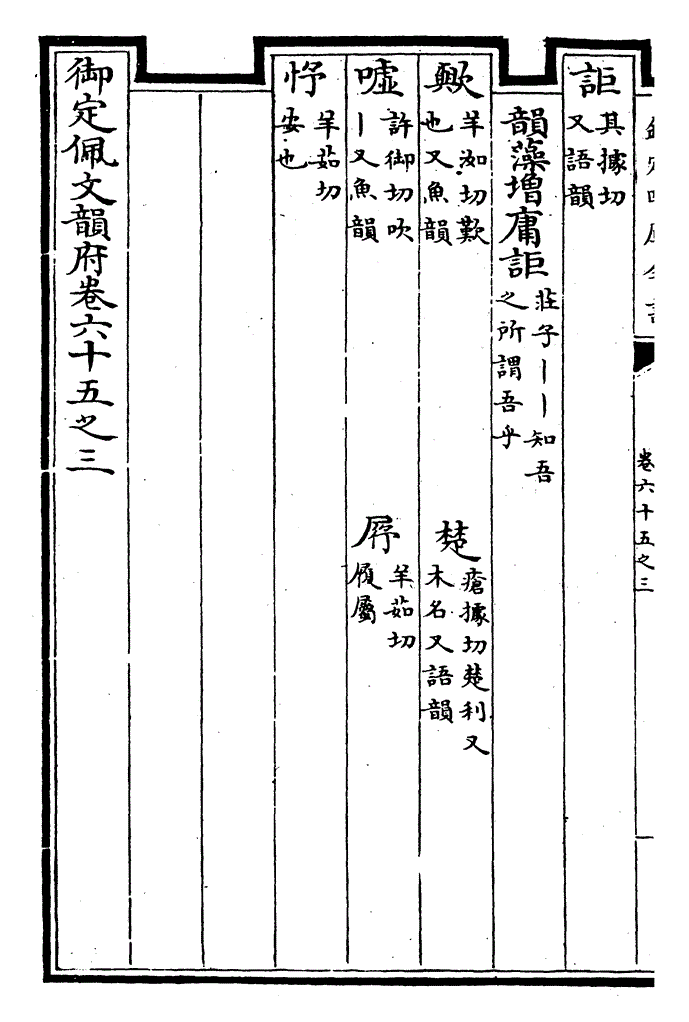 欽定四庫全書
卷六十五之三
詎其據切
又語韻
韻藻增庸詎莊子丨丨知吾
之所謂吾乎
歟羊洳切歎
也又魚韻
楚瘡據切楚利又
木名又語韻
嘘許御切吹
丨又魚韻
㞛羊茹切
履屬
忬羊茹切
安也
御定佩文韻府卷六十五之三